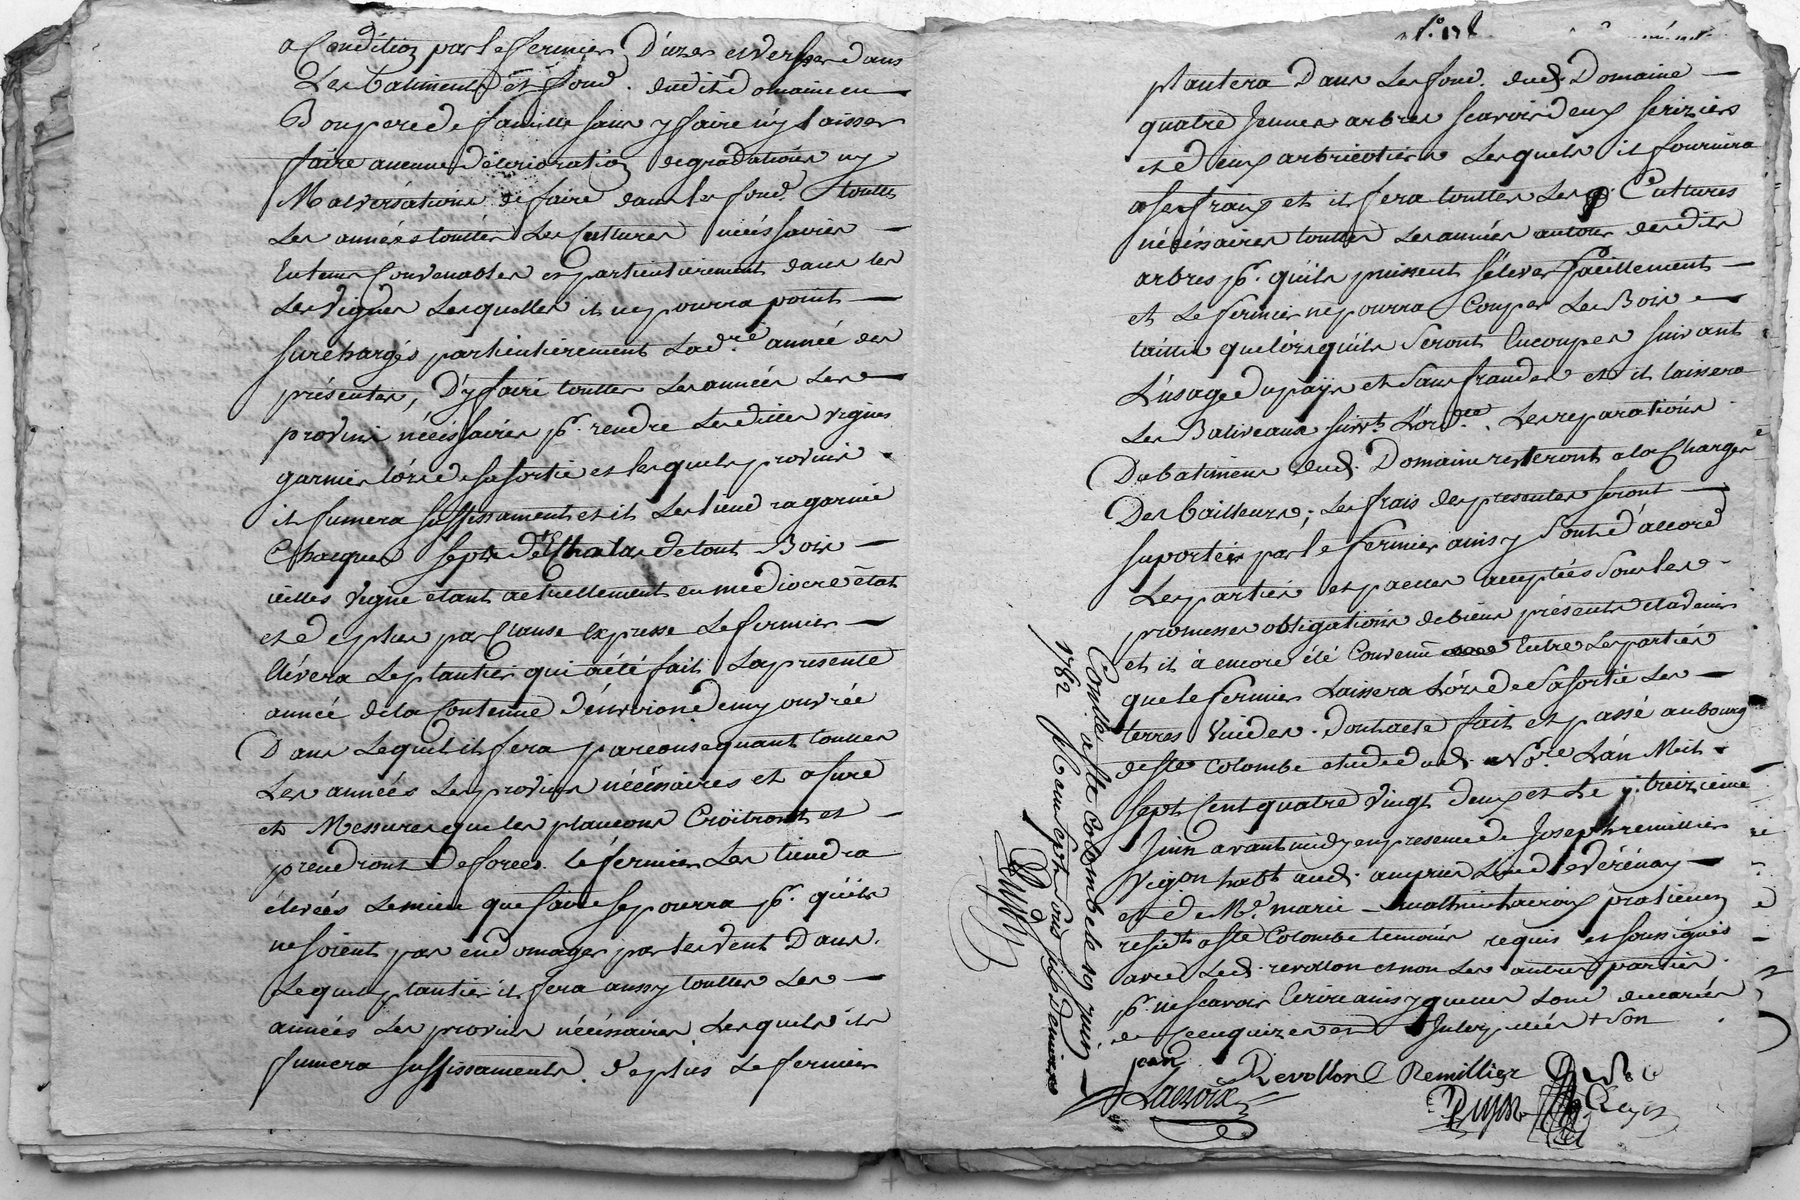 a Condition par le fermier D'uzer et verser dans
Les batiments et fond. dudit domaine en
Bon pere de famille sans y faire n'y Laisser
faire aucune déterioration degradations ny
Malversations de faire dans les fond. toutte
Les années touttes Les Cultures nécéssaires
En tems Convenables et particulierement dans les
Les vignes Lesquelles il ne pourra point
surchargés particulierement La d.re année des
présentes, D'y faire touttes Les années Les
provins nécéssaires pr. rendre Lesdittes vignes
garnies lors de sa sortie et lesquels provins
il fumera suffissament et il Les tiendra garnie
Chaque septs d'Echalas de tout Bois
icelles vigne étant actuellement en mediocre état
et de plus par Clause expresse Le fermier
élévera Le plantier qui a été fait La presente
année de la Contenue d'énviron demy ouvrée
Dans Lequel il fera par consequant touttes
Les années Les provins nécéssaires et a fure
et Messure que les plancons Croitront et
prendront de forces. le fermier Les tiendra
élevées Le mieu que faire se pourra pr. qu'ils
ne soient pas endomagés par les vent Dans
Lequel plantier il fera aussy touttes Les
années Les provins nécéssaires Lesquels ils
fumera suffissaments. de plus Le fermier
plantera Dans Les fond. dud. Domaine
quatre Jeunes arbres scavoir deux seriziers
et deux arbricotiers Lesquels il fournira
a ses fraix et il fera touttes Les Cultures
nécéssaires touttes Les années autour desdits
arbres pr. qu'ils puissent s'élever facillement
et Le fermier ne pourra Couper Les Bois
taillis que lors qu'ils seront En coupes suivant
L'usage du pays et sans fraudes et il laissera
Les Baliveaux suivt. L'ord.ce. Les reparations
Du batimens dud. Domaine resteront a la Charge
Des bailleurs; Les frais des presentes seront
suportés par le fermier ainsy Sont d'accord
Les parties et pactes acceptés sous les
promesses obligations de biens présents et advenir
et il à encore été Convenu Entre Les parties
que le fermier Laissera Lors de Sa sortie Les
terres Vuides. Dont acte fait et passé au bourg
de ste Colombe etude dud. No.re L'an Mil
sept Cent quatre vingt deux et Le treizieme
Juin avant midy en presence de Joseph remillier
Vigon habt. aud. ampuis Lieu de Vérénay
et de Me. marie Mathieu Lacroix praticien
residt a ste Colombe temoins requis et soussignés
avec Led. revollon et non Les autres parties
pr. ne scavoir Ecrire ainsy
de Ce enquizes et
jean
Lacroix
Revollon
Remillier
Dupuy
Conllé a ste Colombe le 19 juin
1782
Reçu